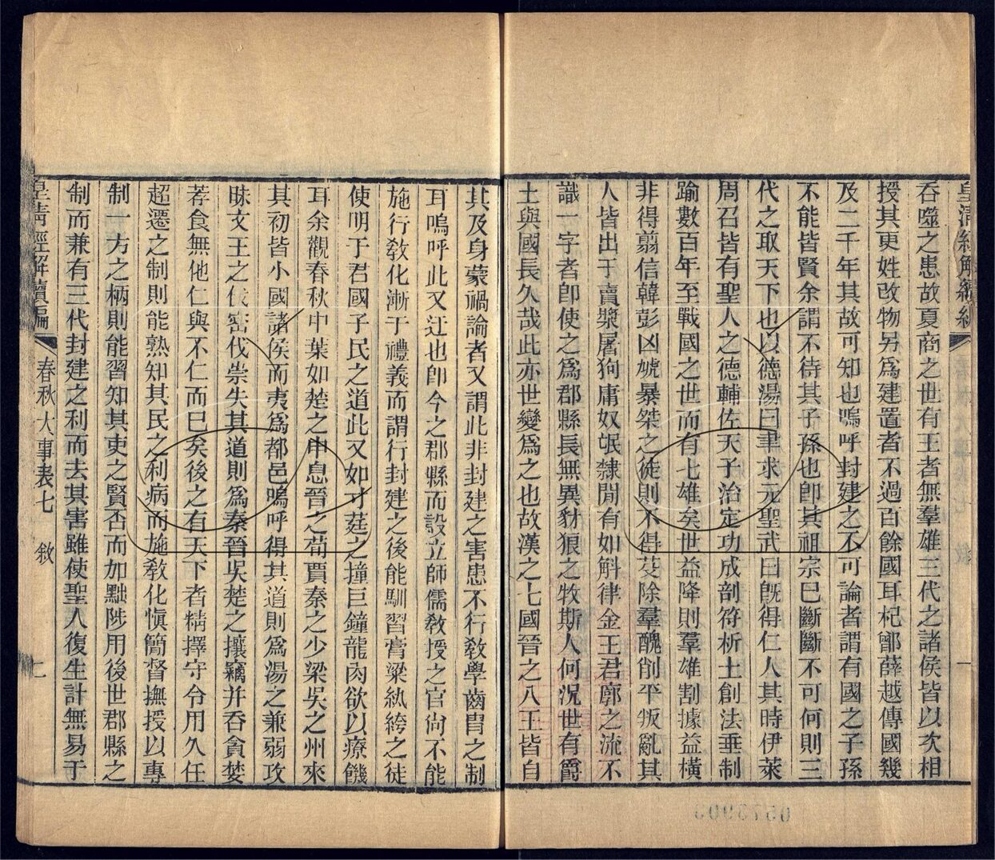 皇清經解續編
吞噬之患故夏商之世有王者無羣雄三代之諸侯皆以次相
授其更姓改物另爲建置者不過百餘國耳杞鄫薛越傳國幾
及二千年其故可知也嗚呼封建之不可論者謂有國之子孫
不能皆賢余謂不待其子孫也卽其祖宗已斷斷不可何則三
代之取天下也以德湯曰聿求元聖武曰旣得仁人其時伊萊
周召皆有聖人之德輔佐天子治定功成剖符析土創法垂制
踰數百年至戰國之世而有七雄矣世益降則羣雄割據益橫
非得翦信韓彭凶虓暴桀之徒則不得芟除羣醜削平叛亂其
人皆出于賣漿屠狗庸奴氓隸閒有如斛律金王君廓之流不
識一字者卽使之爲郡縣長無異豺狼之牧斯人何況世有爵
土與國長久哉此亦世變爲之也故漢之七國晉之八王皆自
其及身蒙禍論者又謂此非封建之害患不行敎學齒冑之制
耳嗚呼此又迂也卽今之郡縣而設立師儒敎授之官尙不能
施行敎化漸于禮義而謂行封建之後能馴習膏粱紈綺之徒
使明于君國子民之道此又如寸莛之撞巨鐘龍肉欲以療饑
耳余觀春秋中葉如楚之申息晉之荀賈秦之少梁吳之州來
其初皆小國諸侯而夷爲都邑嗚呼得其道則爲湯之兼弱攻
昧文王之伐密伐崇失其道則爲秦晉吳楚之攘竊并吞貪婪
荐食無他仁與不仁而已矣後之有天下者精擇守令用久任
超遷之制則能熟知其民之利病而施敎化愼簡督撫授以專
制一方之柄則能習知其吏之賢否而加黜陟用後世郡縣之
制而兼有三代封建之利而去其害雖使聖人復生計無易于
皇淸經解續編 春秋大事表七 敘 七
0573903